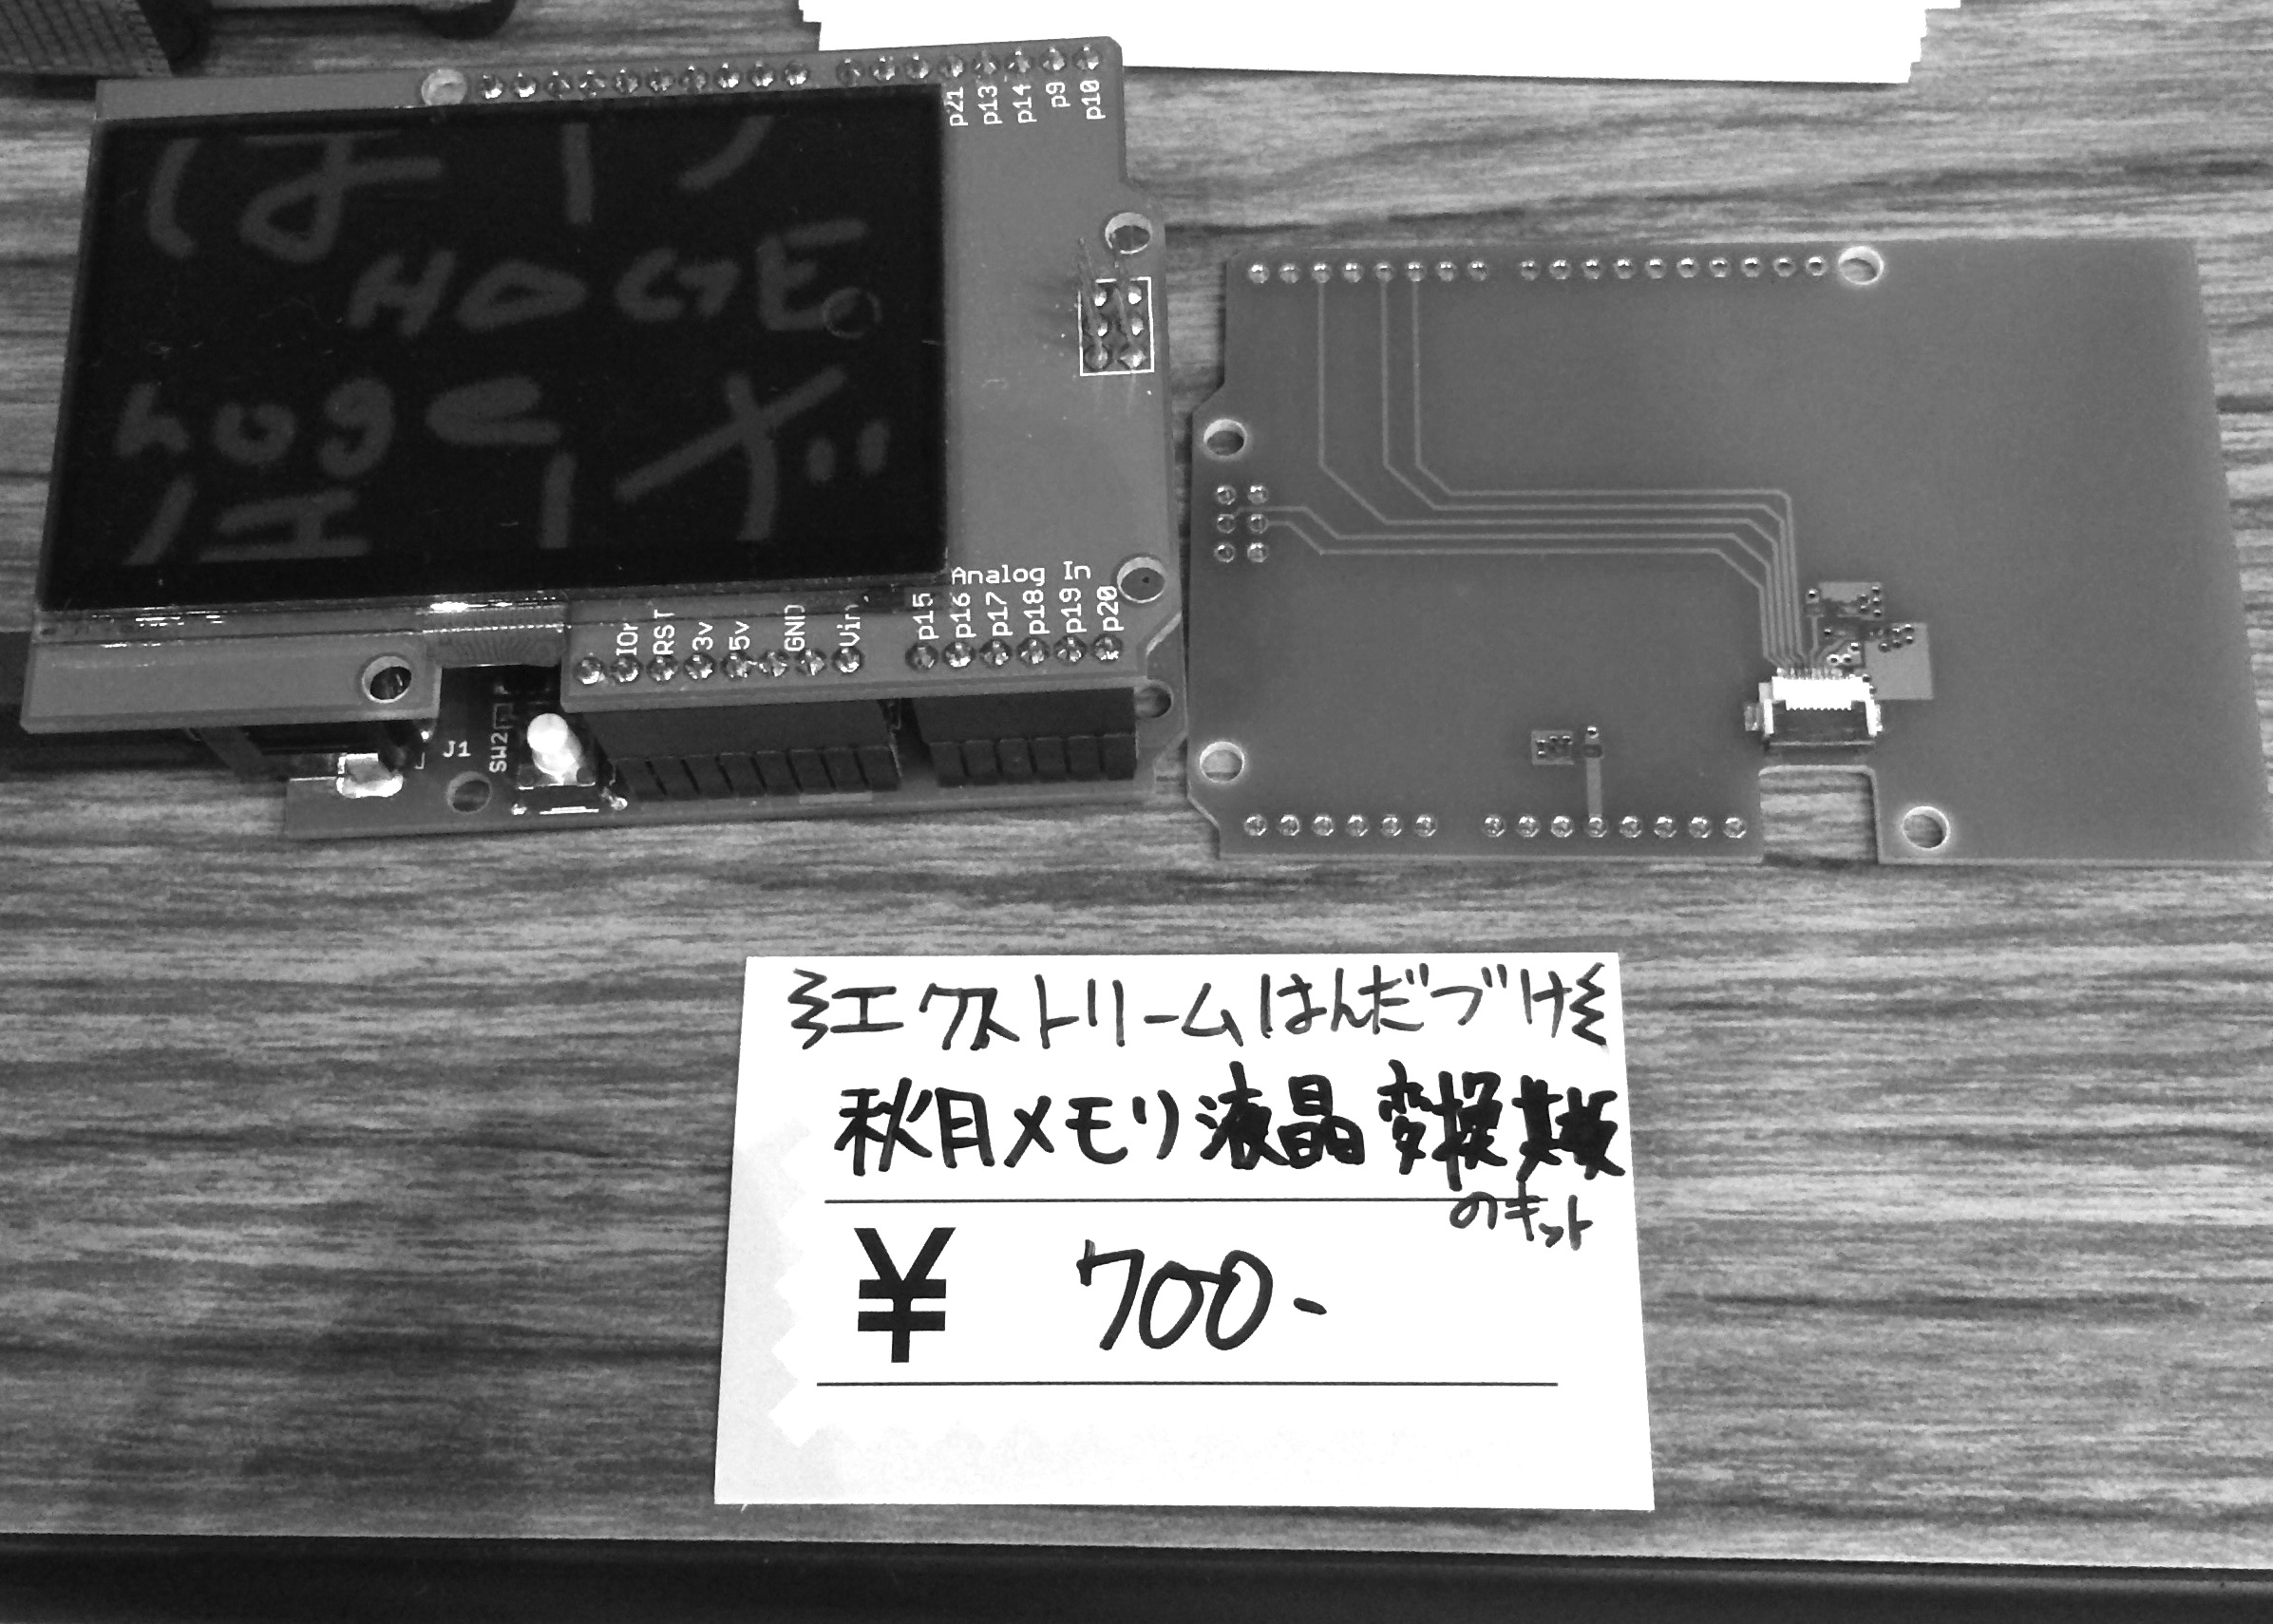 p21 p13 p14 p9 p10
HOGE
hoge
Analog In
IOr RST 3v 5v GND Vin p15 p16 p17 p18 p19 p20
J1
SW2
エクストリームはんだづけ
秋月メモリ液晶変換基板
のキット
¥ 700-